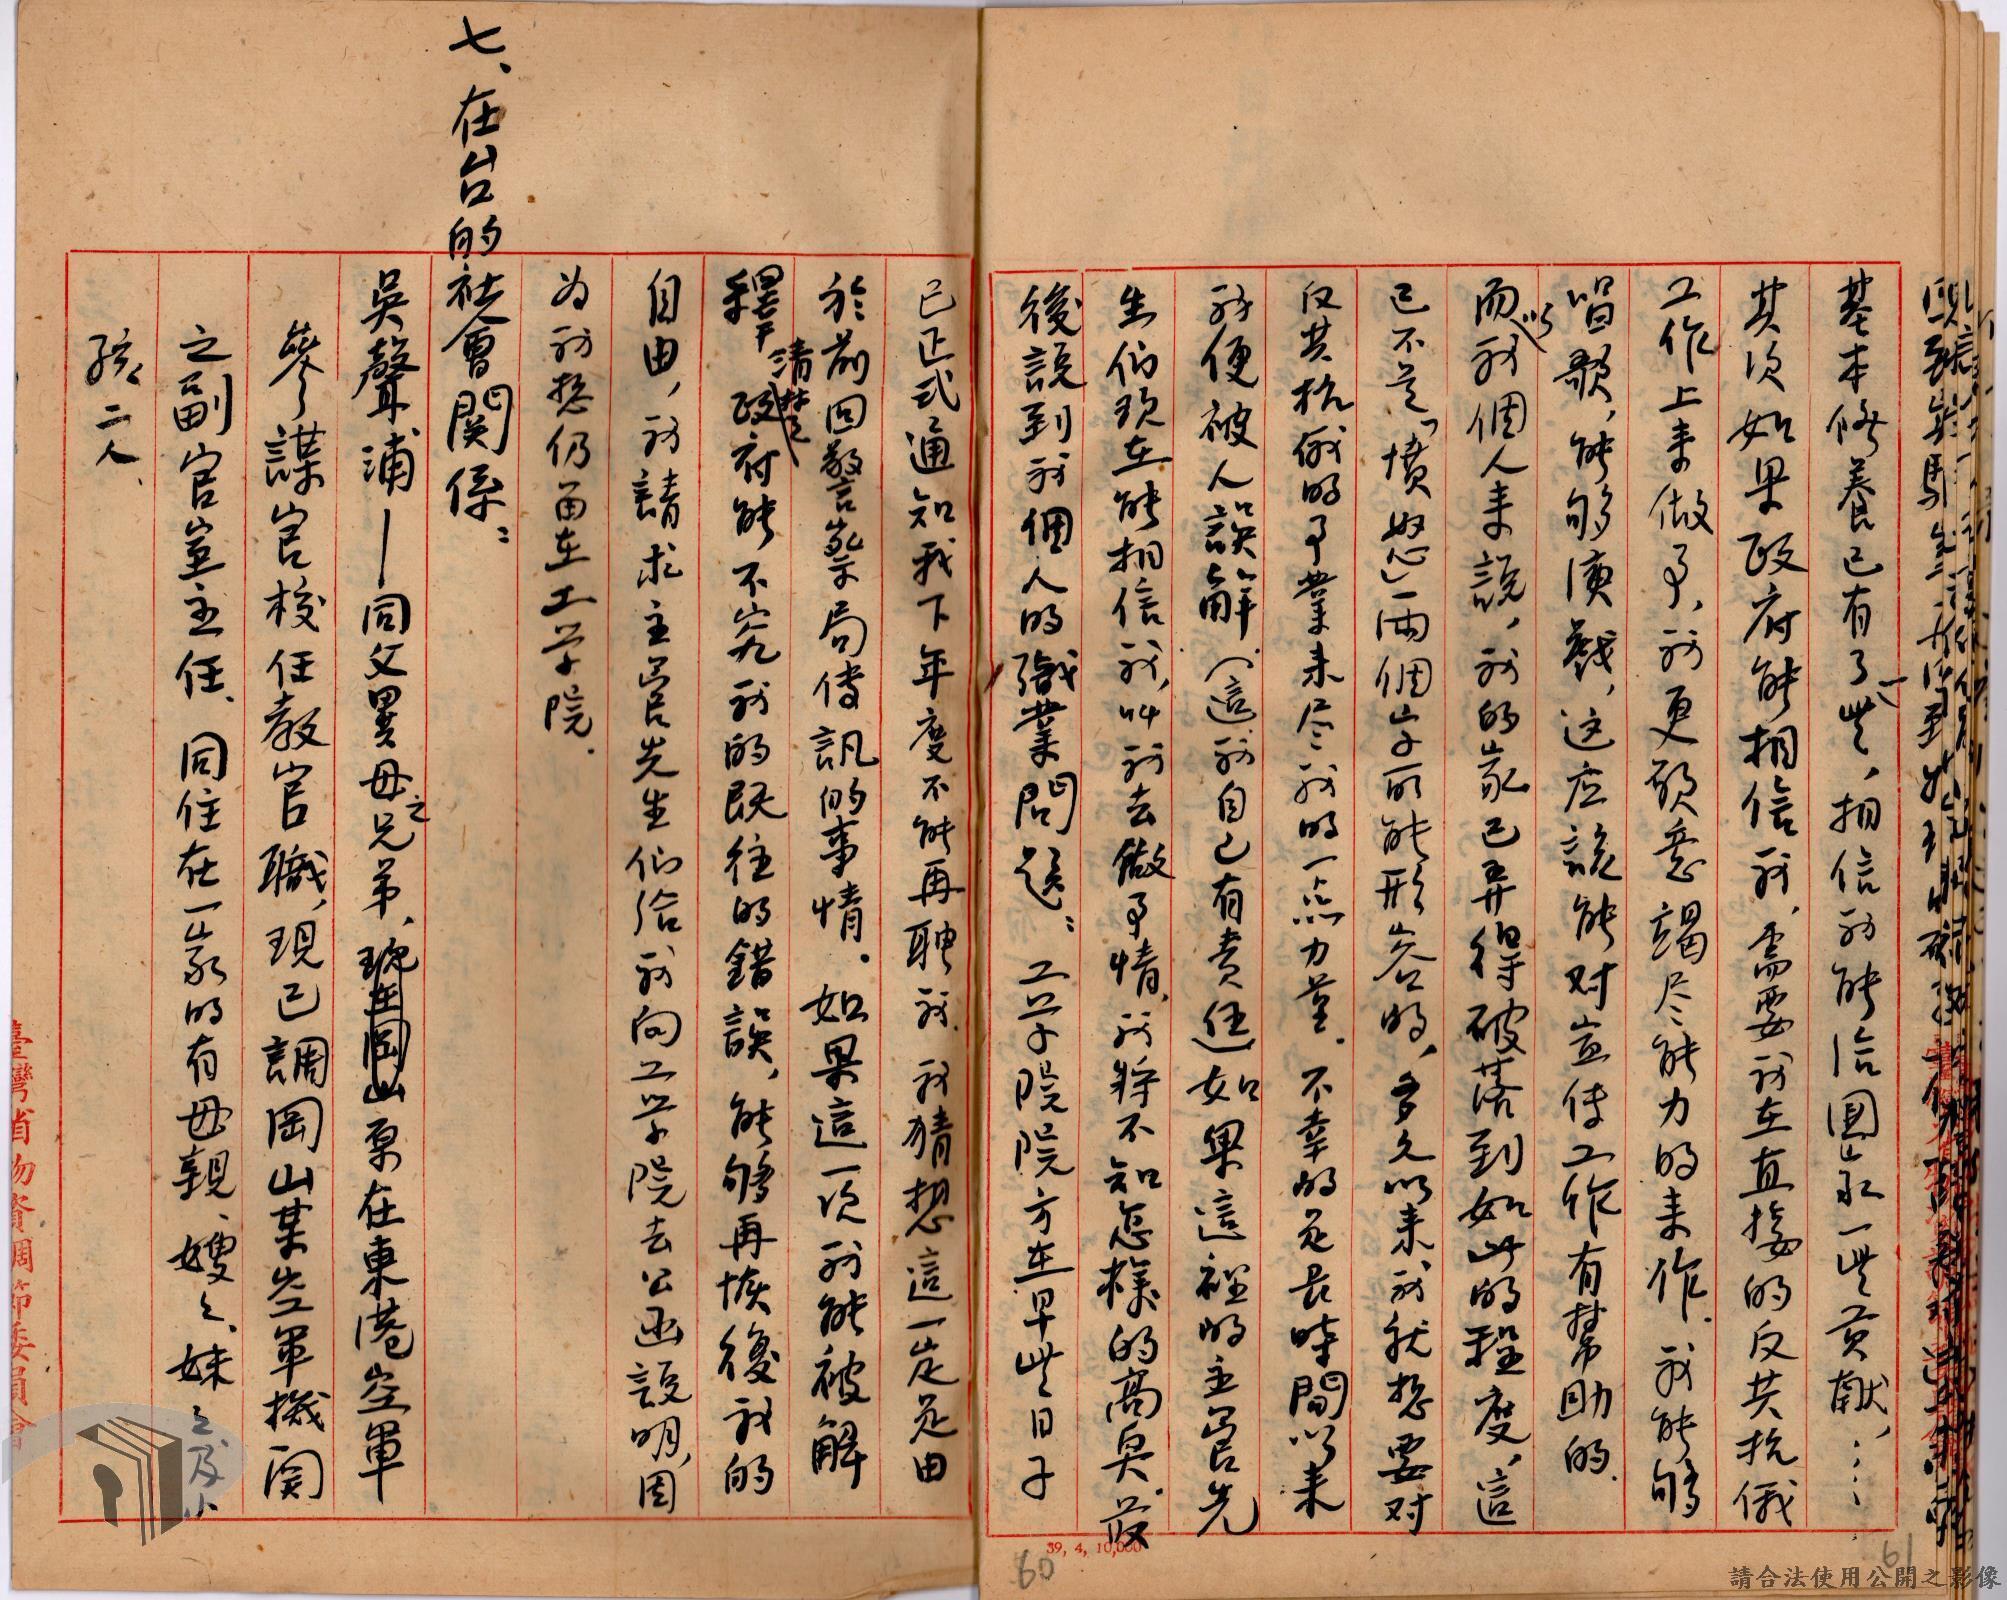 基本修養已有了一些，相信我能給國家一些貢献，……
其次如果政府能相信我，需要我在直接的反共抗俄
工作上来做事，我更願意竭尽能力的来作。我能够
唱歌，能够演戲，这应該能对宣传工作有幫助的。
而以我個人来說，我的家已弄得破落到如此的程度，這
已不是「憤怒」両個字所能形容的，多久以来我就想要对
反共抗俄的事業来尽我的一点力量。不幸的是長時間以来
我便被人誤解（這我自己有責任）如果這裡的主官先
生们現在能相信我，叫我去做事情，我将不知怎樣的高興。最
後説到我個人的職業問題：工学院院方在早些日子
已正式通知我下年度不能再聘我。我猜想這一定是由
於前回警察局傳訊的事情。如果這一次我能被解
釋清楚政府能不究我的既往的錯誤，能够再恢復我的
自由，我請求主官先生们給我向工学院去公函説明，因
为我想仍留在工学院。
七、在台的社會関係：
吳聲浦—同父異母之兄弟，現在岡山原在東港空軍
參謀官校任教官職，現已調岡山某空軍機関
之副官室主任、同住在一家的有母親、嫂々、妹々及小
孩二人、
臺灣省物資調節委員會
39, 4, 10,000
60
61
請合法使用公開之影像